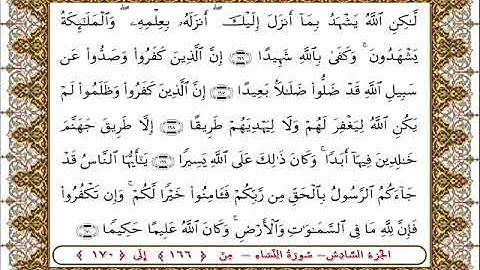 لَّٰكِنِ ٱللَّهُ يَشْهَدُ بِمَآ أَنزَلَ إِلَيْكَ ۖ أَنزَلَهُۥ بِعِلْمِهِۦ ۖ وَٱلْمَلَٰٓئِكَةُ
يَشْهَدُونَ ۚ وَكَفَىٰ بِٱللَّهِ شَهِيدًا ﴿١٦٦﴾ إِنَّ ٱلَّذِينَ كَفَرُوا۟ وَصَدُّوا۟ عَن
سَبِيلِ ٱللَّهِ قَدْ ضَلُّوا۟ ضَلَٰلًۢا بَعِيدًا ﴿١٦٧﴾ إِنَّ ٱلَّذِينَ كَفَرُوا۟ وَظَلَمُوا۟ لَمْ
يَكُنِ ٱللَّهُ لِيَغْفِرَ لَهُمْ وَلَا لِيَهْدِيَهُمْ طَرِيقًا ﴿١٦٨﴾ إِلَّا طَرِيقَ جَهَنَّمَ
خَٰلِدِينَ فِيهَآ أَبَدًا ۚ وَكَانَ ذَٰلِكَ عَلَى ٱللَّهِ يَسِيرًا ﴿١٦٩﴾ يَٰٓأَيُّهَا ٱلنَّاسُ قَدْ
جَآءَكُمُ ٱلرَّسُولُ بِٱلْحَقِّ مِن رَّبِّكُمْ فَـَٔامِنُوا۟ خَيْرًا لَّكُمْ ۚ وَإِن تَكْفُرُوا۟
فَإِنَّ لِلَّهِ مَا فِى ٱلسَّمَٰوَٰتِ وَٱلْأَرْضِ ۚ وَكَانَ ٱللَّهُ عَلِيمًا حَكِيمًا ﴿١٧٠﴾
الجزء السادس - سورة النساء - من ﴿ ١٦٦ ﴾ إلى ﴿ ١٧٠ ﴾